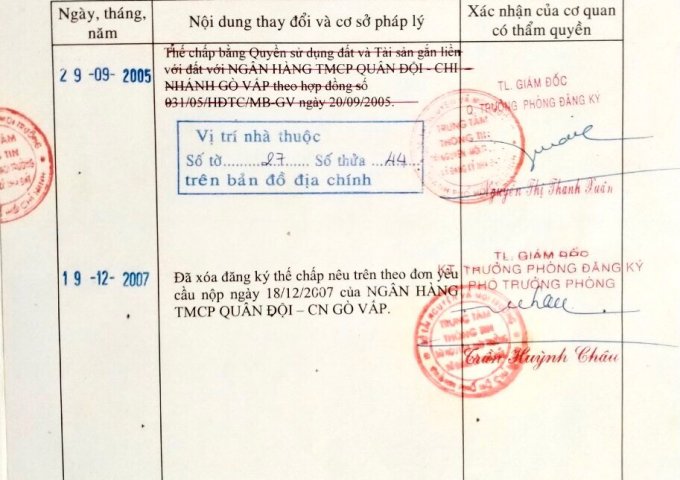 Ngày, tháng, năm
Nội dung thay đổi và cơ sở pháp lý
Xác nhận của cơ quan có thẩm quyền
29-09-2005
Thế chấp bằng Quyền sử dụng đất và Tài sản gắn liền
với đất với NGÂN HÀNG TMCP QUÂN ĐỘI - CHI
NHÁNH GÒ VẤP theo hợp đồng số
031/05/HĐTC/MB-GV ngày 20/09/2005.
TL. GIÁM ĐỐC
TRƯỞNG PHÒNG ĐĂNG KÝ
TRUNG TÂM
THÔNG TIN
Nguyễn Thị Thanh Xuân
Vị trí nhà thuộc
Số tờ 27 Số thửa 44
trên bản đồ địa chính
TÂM
TIN
19-12-2007
Đã xóa đăng ký thế chấp nêu trên theo đơn yêu
cầu nộp ngày 18/12/2007 của NGÂN HÀNG
TMCP QUÂN ĐỘI – CN GÒ VẤP.
TL. GIÁM ĐỐC
KT. TRƯỞNG PHÒNG ĐĂNG KÝ
PHÓ TRƯỞNG PHÒNG
TRUNG TÂM
THÔNG TIN
Trần Huỳnh Châu